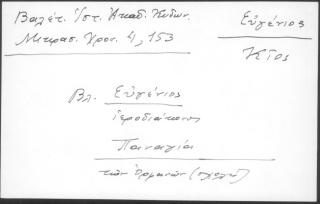 Βαλέτ. Ἱστ. Ἀκαδ. Κυδων.
Μικρασ. Χρον. 4, 153
Εὐγένιος
Κῖος
Βλ. Εὐγένιος
ἱεροδιάκονος
Παναγία
τῶν Ὀρφανῶν